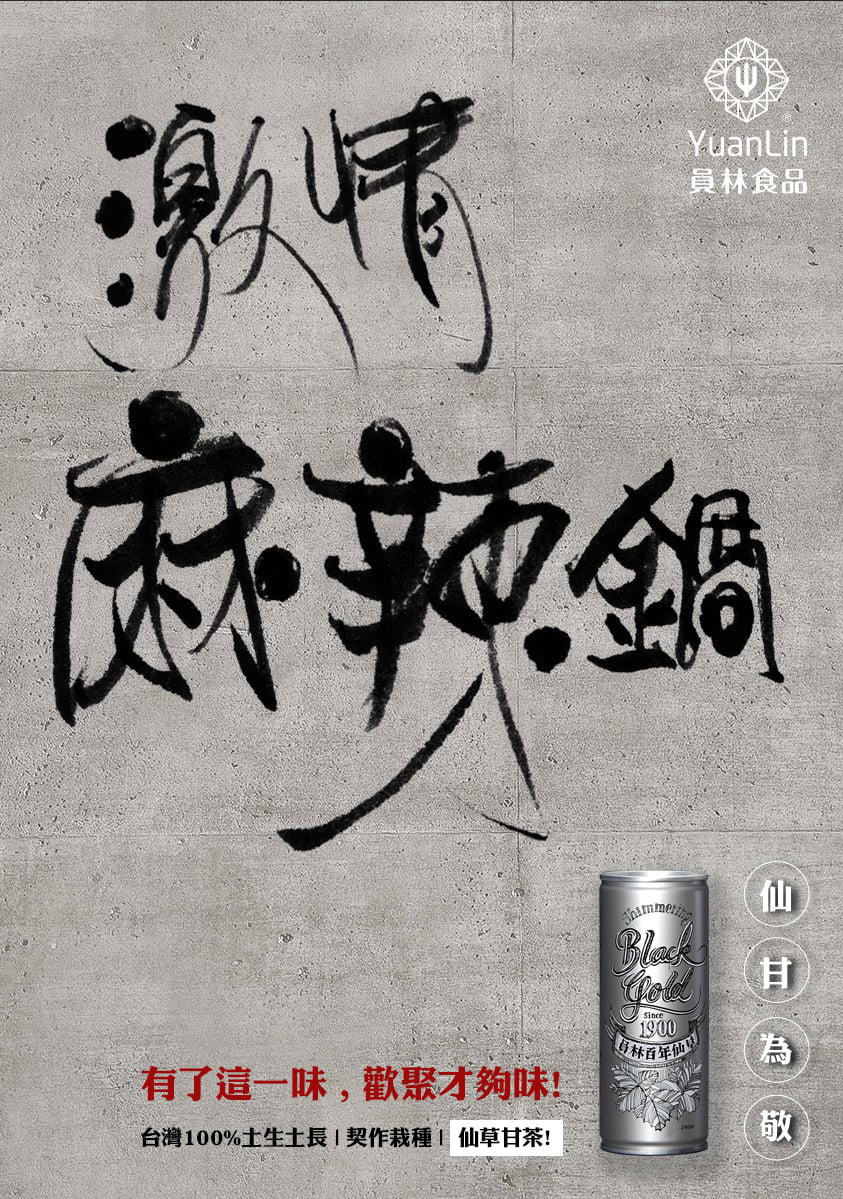 激情
麻辣鍋
®
YuanLin
員林食品
Shimmering
Black
Gold
Since
1900
員林百年仙草
240ml
仙
甘
為
敬
有了這一味，歡聚才夠味!
台灣100%土生土長 | 契作栽種 | 仙草甘茶!